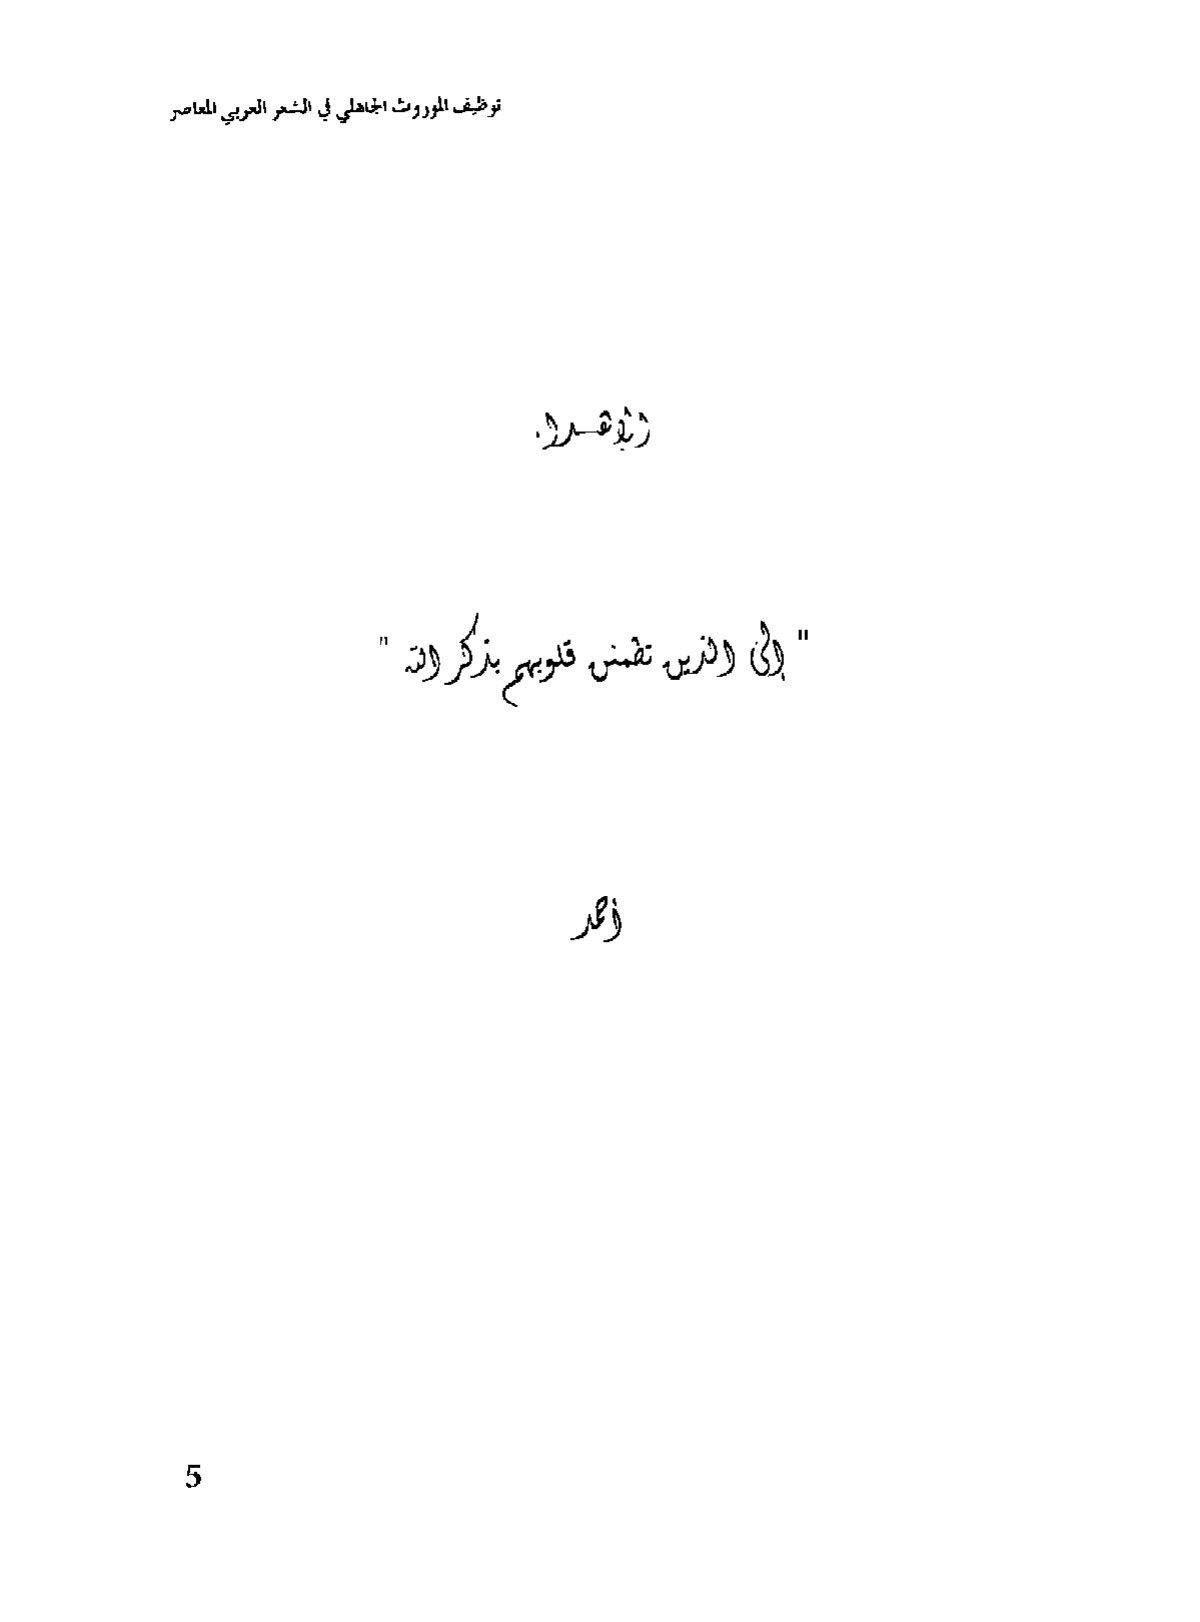 توظيف الموروث الجاهلي في الشعر العربي المعاصر
الإهـداء
" إلى الذين تطمئن قلوبهم بذكر الله "
أحمد
5